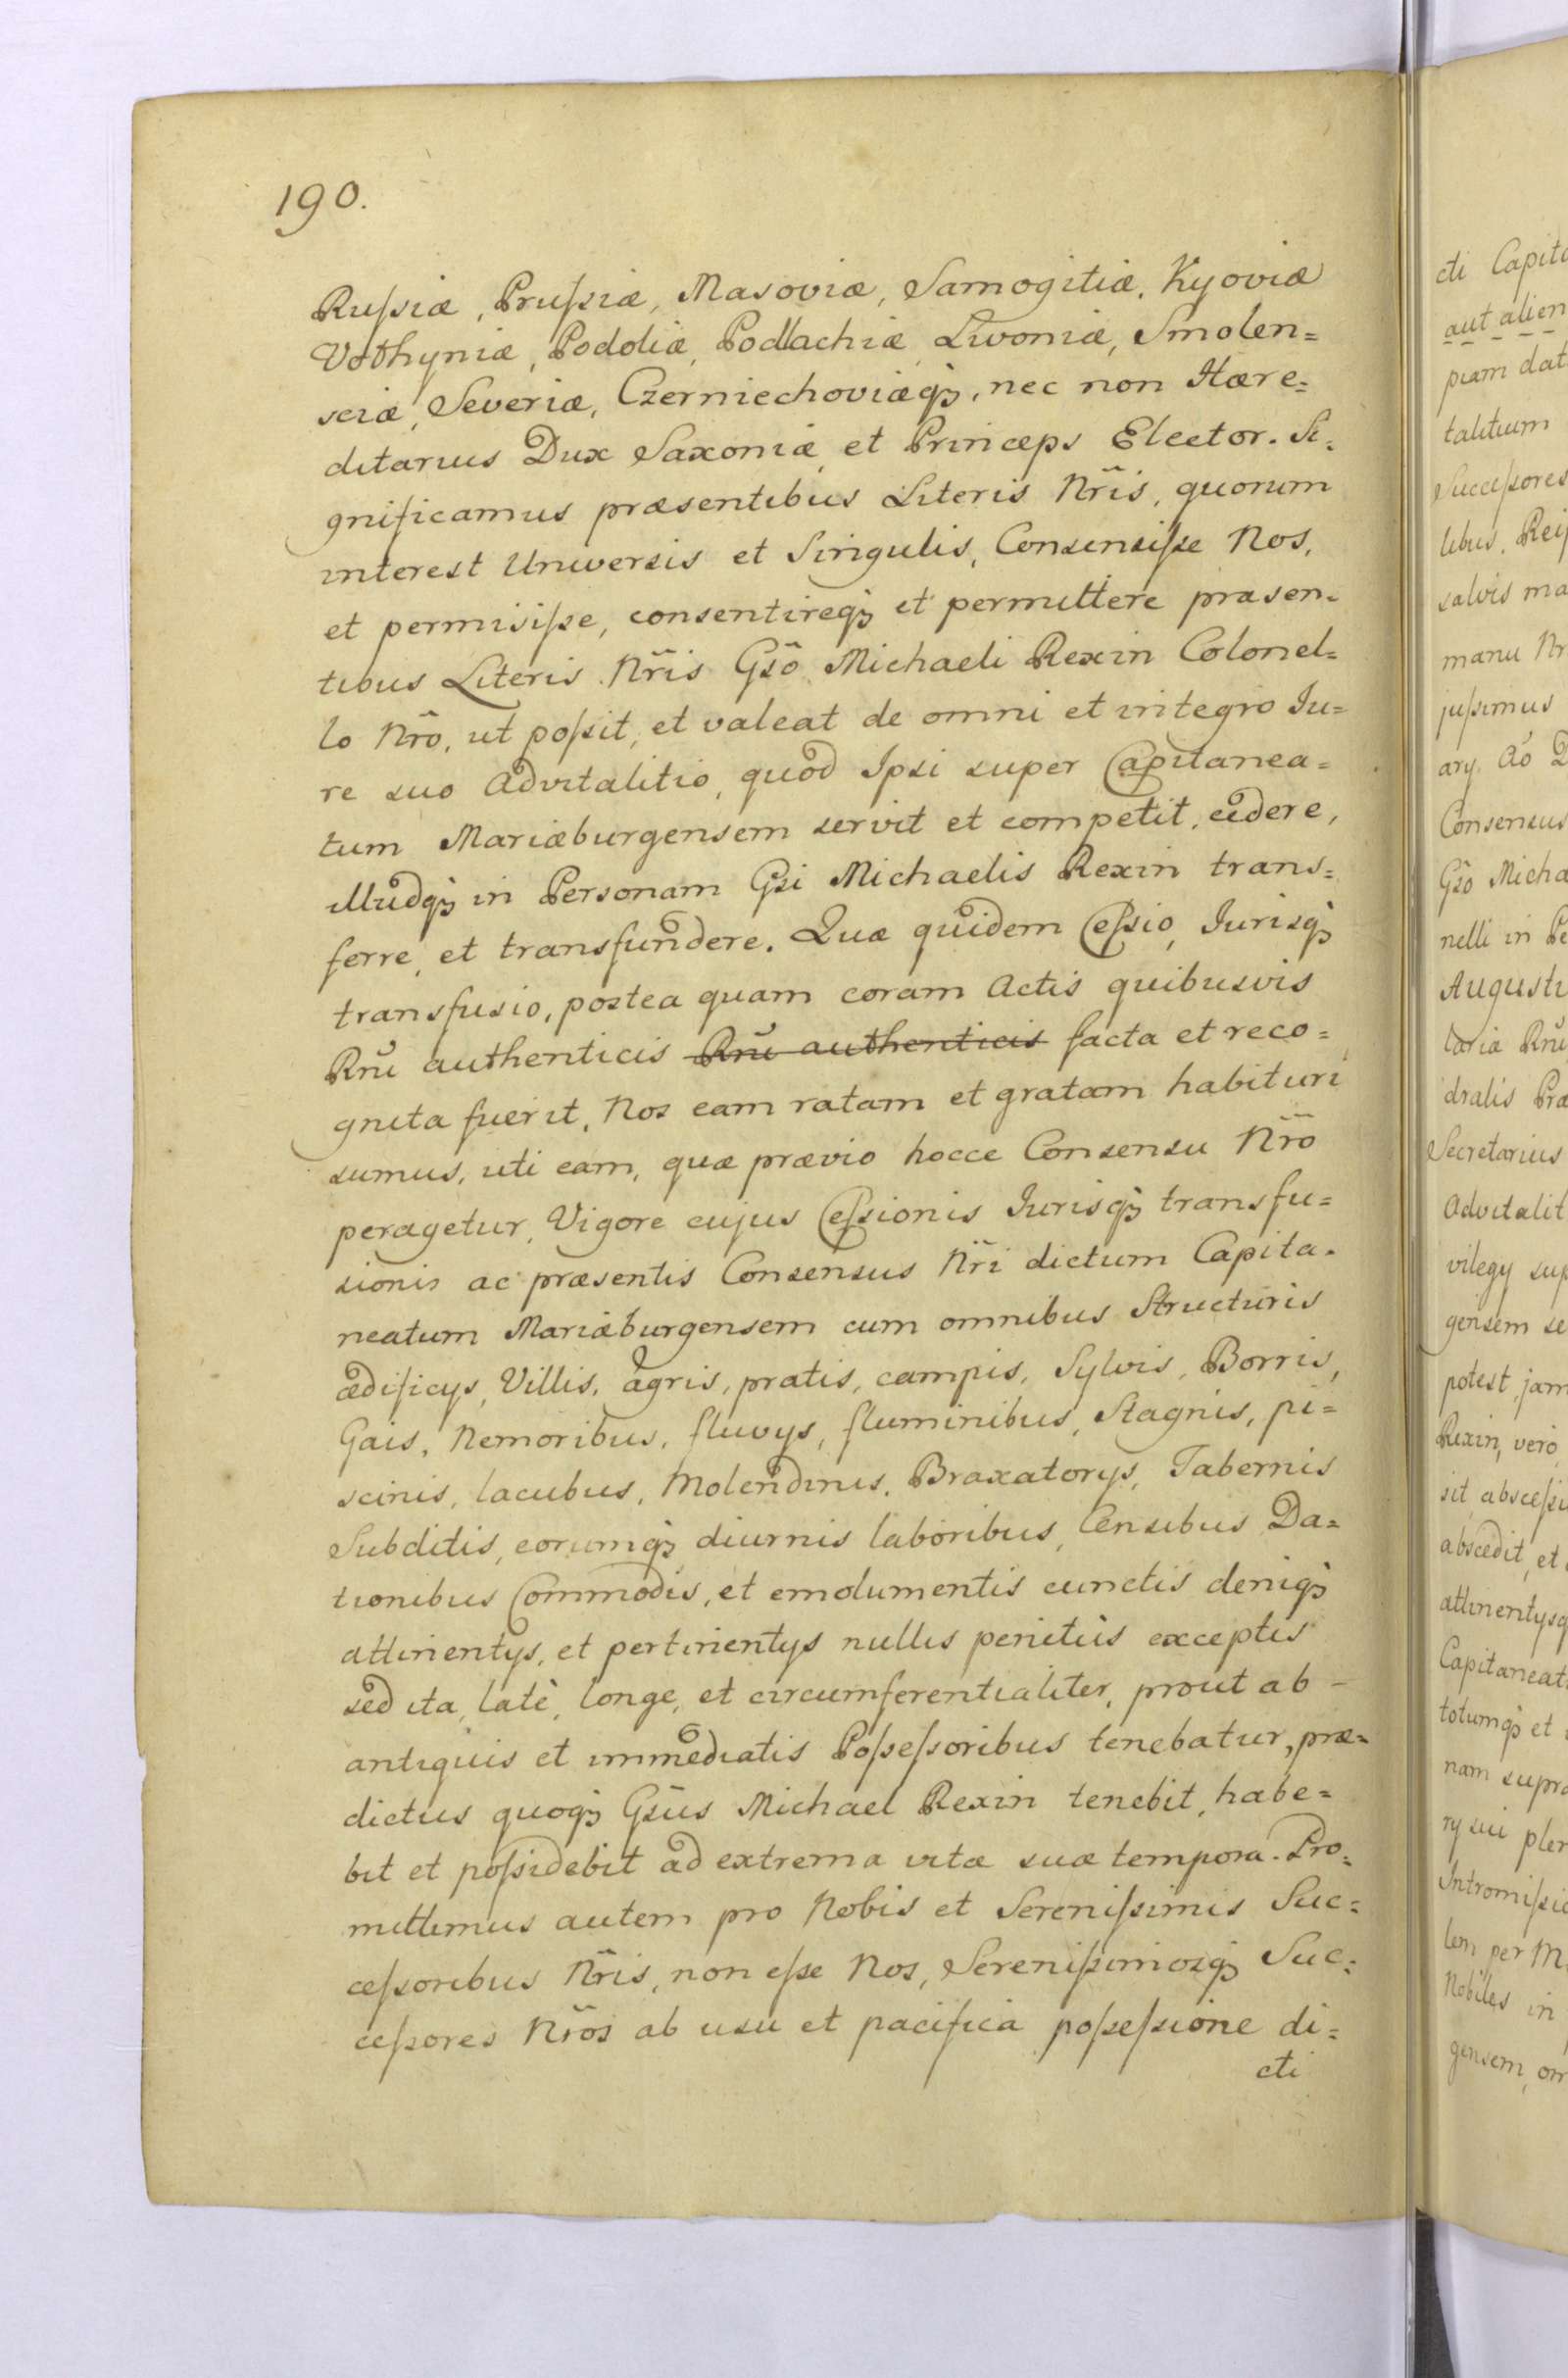 190.
Ruſsiæ, Pruſsiæ, Masoviæ, Samogitiæ, Kyoviæ
Volhyniæ, Podoliæ, Podlachiæ Livoniæ, Smolen=
sciæ, Severiæ, Czerniechoviæq̃, nec non Hære=
ditarius Dux Saxoniæ et Princeps Elector. Si=
gnificamus præsentibus Literis Nr̃is, quorum
interest Universis et Singulis, Consensiſse Nos,
et permisiſse, consentireq̃ et permittere præsen=
tibus Literis Nr̃is Gsõ Michaeli Rexin Colonel=
lo Nrõ, ut poſsit, et valeat de omni et integro Ju=
re suo Advitalitio, quod Ipsi super Capitanea=
tum Mariæburgensem servit et competit, cedere,
illudq̃ in Personam Gsi Michaelis Rexin trans=
ferre, et transfundere. Quæ quidem Ceſsio, Jurisq̃
transfusio, postea quam coram Actis quibusvis
Rnũ authenticis Rnũ authenticis facta et reco=
gnita fuerit, Nos eam ratam et gratam habituri
sumus, uti eam, quæ prævio hocce Consensu Nr̃o
peragetur, Vigore cujus Ceſsionis Jurisq̃ transfu=
sionis ac præsentis Consensus Nr̃i dictum Capita=
neatum Mariæburgensem cum omnibus Structuris
ædificys, Villis, agris, pratis, campis, Sylvis, Borris,
Gais, Nemoribus, fluvys, fluminibus, Stagnis, pi=
scinis, lacubus, Molendinis, Braxatorys, Tabernis
Subditis, eorumq̃ diurnis laboribus, Censibus Da=
tionibus Commodis, et emolumentis cunctis deniq̃
attinentys, et pertinentys nullis penitùs exceptis
sed ita, latè, longe, et circumferentialiter, prout ab -
antiquis et immediatis Poſseſsoribus tenebatur, præ=
dictus quoq̃ Gsũs Michael Rexin tenebit, habe=
bit et poſsidebit ad extrema vitæ suæ tempora. Pro=
mittimus autem pro Nobis et Sereniſsimis Suc=
ceſsoribus Nr̃is, non eſse Nos, Sereniſsimosq̃ Suc=
ceſsores Nr̃os ab usu et pacifica poſseſsione di=
cti
cti Capit
aut alien
piam dat
talitium
Succeſsores
libus, Rei
salvis ma
manu Nr
juſsimus
ary Aõ D
Consensus
Gsõ Micha
nelli in Pe
Augusti
laria Rnũ
dralis Præ
Secretarius
Advitalit
vilegy sup
gensem se
potest, jam
Rexin, vero
sit, absceſsi
abscedit, et
attinentysq
Capitaneat
totumq̃ et
nam supra
ry sui plen
Intromiſsio
lem per M
Nobiles in
gensem, om